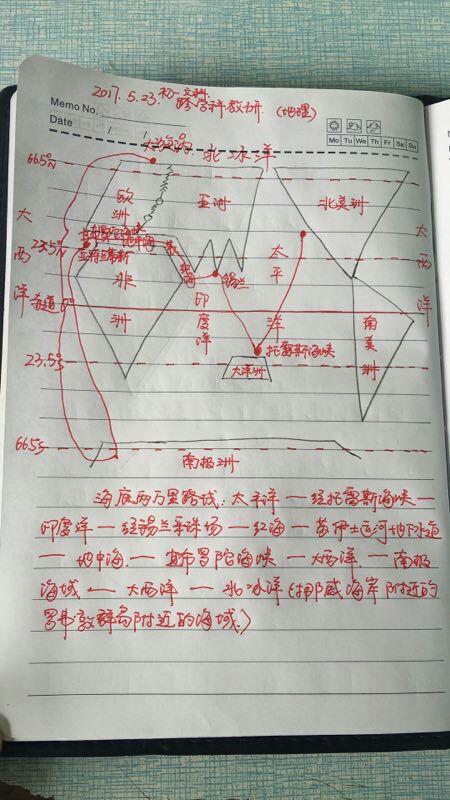 2017.5.23.初一文科
跨学科教研.(地理)
Memo No.
Date / /
Mo Tu We Th Fr Sa Su
北冰洋
66.5°N
欧洲
亚洲
北美洲
大西洋
太平洋
大西洋
23.5°N
地中海
红海
锡兰
非洲
印度洋
赤道0°
南美洲
托雷斯海峡
23.5°S
大洋洲
66.5°S
南极洲
海底两万里路线:太平洋一经托雷斯海峡一
印度洋一经锡兰采珠场一红海一苏伊士运河地下隧道
一地中海.一直布罗陀海峡一大西洋.一南极
海域一大西洋一北冰洋(挪威海岸附近的
罗弗敦群岛附近的海域.)